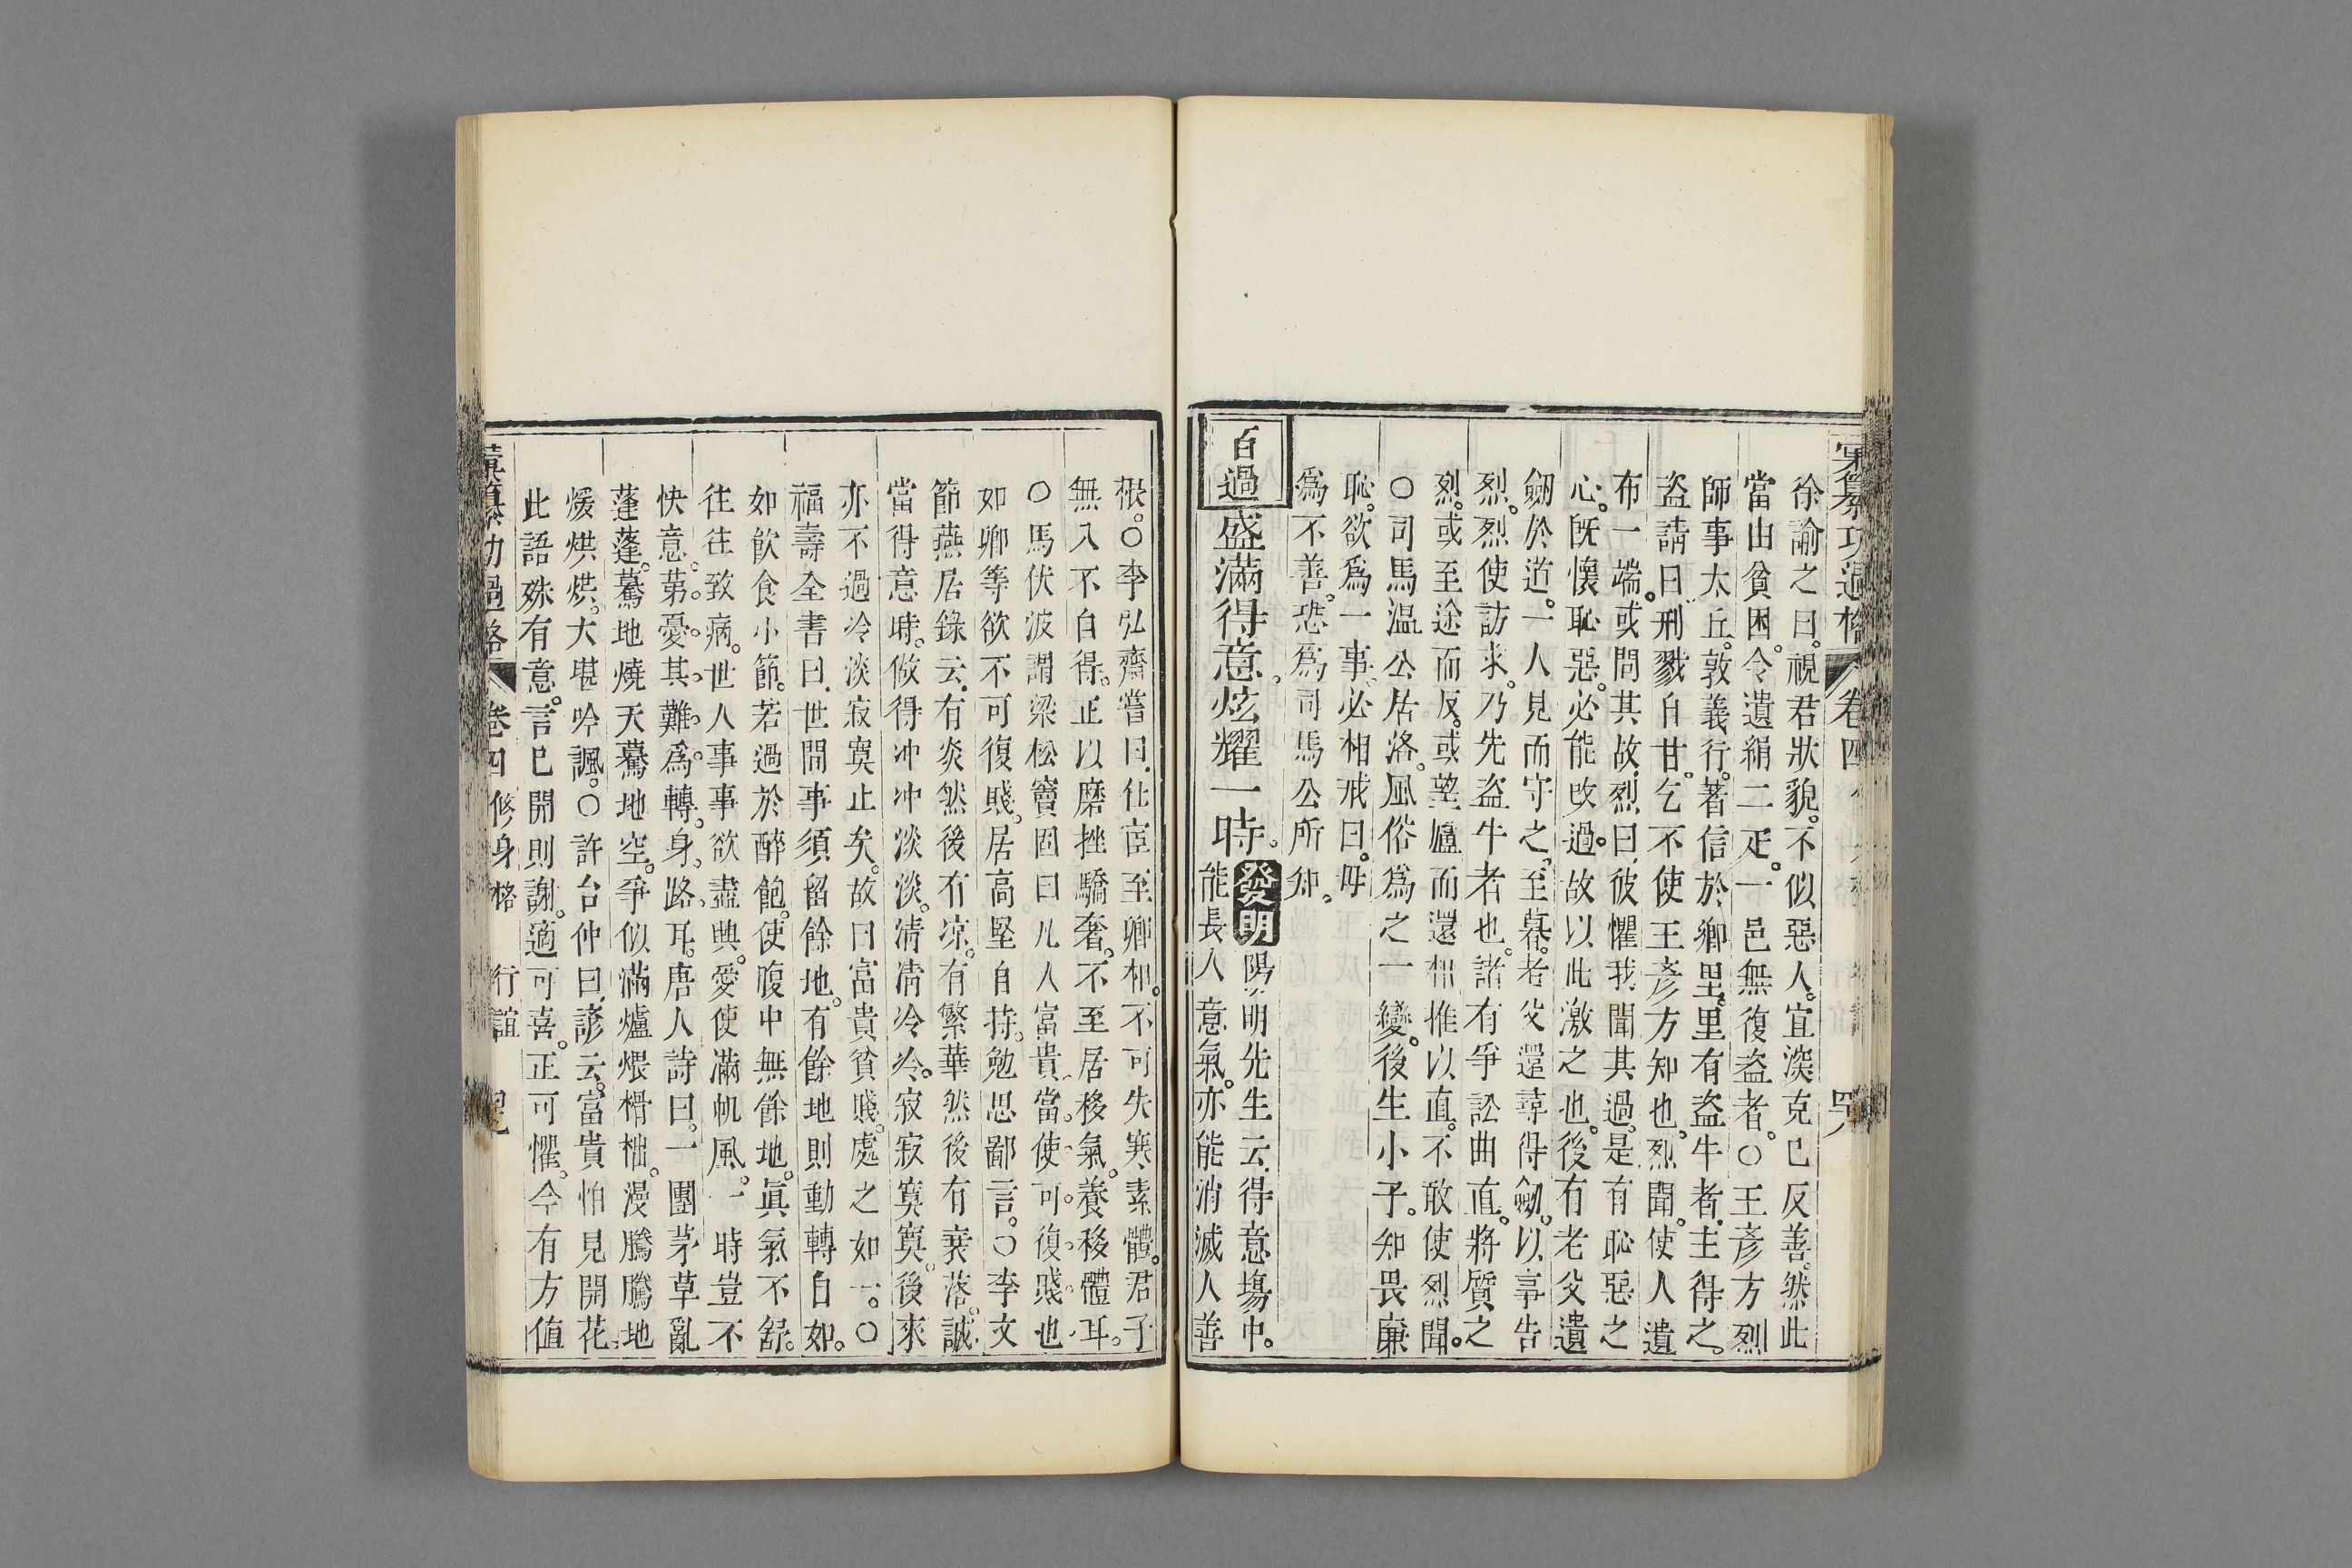 彙纂功過格 卷四
徐諭之曰。視君狀貌。不似惡人。宜深克己反善。然此
當由貧困。令遺絹二疋。一邑無復盜者。○王彥方烈
師事太丘。敦義行。著信於鄉里。里有盜牛者。主得之。
盜請曰。刑戮自甘。乞不使王彥方知也。烈聞。使人遺
布一端。或問其故。烈曰。彼懼我聞其過。是有恥惡之
心。旣懷恥惡。必能改過。故以此激之也。後有老父遺
劒於道。一人見而守之。至暮。老父還尋得劒。以事告
烈。烈使訪求。乃先盜牛者也。諸有爭訟曲直。將質之
烈。或至途而反。或望廬而還。相推以直。不敢使烈聞。
○司馬溫公居洛。風俗爲之一變。後生小子。知畏廉
恥。欲爲一事。必相戒曰。毋
爲不善。恐爲司馬公所知。
百過 盛滿得意。炫耀一時。 發明 陽明先生云。得意塲中。
能長人意氣。亦能消滅人善
根。○李弘齋嘗曰。仕宦至卿相。不可失寒素體。君子
無入不自得。正以磨挫驕奢。不至居移氣。養移體耳。
○馬伏波謂梁松竇固曰。凡人富貴。當使可復賤也。
如卿等欲不可復賤。居高堅自持。勉思鄙言。○李文
節燕居錄云。有炎然後有凉。有繁華然後有衰落。誠
當得意時。做得冲冲淡淡。清清冷冷。寂寂寞寞。後來
亦不過冷淡寂寞止矣。故曰富貴貧賤。處之如一。○
福壽全書曰。世間事須留餘地。有餘地則動轉自如。
如飲食小節。若過於醉飽。使腹中無餘地。眞氣不舒。
往往致病。世人事事欲盡興。愛使滿帆風。一時豈不
快意。第憂其難爲轉身路耳。唐人詩曰。一團茅草亂
蓬蓬。驀地燒天驀地空。爭似滿爐煨榾柮。漫騰騰地
煖烘烘。大堪吟諷。○許台仲曰。諺云。富貴怕見開花。
此語殊有意。言已開則謝。適可喜。正可懼。今有方値
彙纂功過格 卷四 修身格 行誼